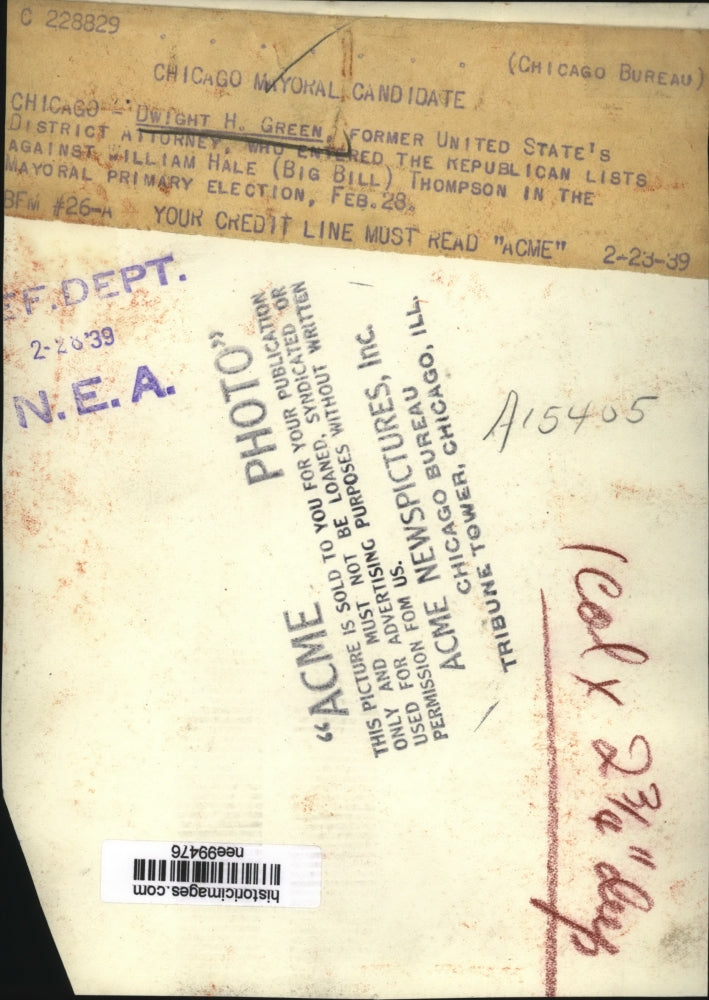 C 228829
(CHICAGO BUREAU)
CHICAGO MAYORAL CANDIDATE
CHICAGO -- DWIGHT H. GREEN, FORMER UNITED STATE'S
DISTRICT ATTORNEY, WHO ENTERED THE REPUBLICAN LISTS
AGAINST WILLIAM HALE (BIG BILL) THOMPSON IN THE
MAYORAL PRIMARY ELECTION, FEB. 28.
BFM #26-A YOUR CREDIT LINE MUST READ "ACME" 2-23-39
EF. DEPT.
2-28'39
N.E.A.
"ACME PHOTO"
THIS PICTURE IS SOLD TO YOU FOR YOUR PUBLICATION
ONLY AND MUST NOT BE LOANED, SYNDICATED OR
USED FOR ADVERTISING PURPOSES WITHOUT WRITTEN
PERMISSION FOM US.
ACME NEWSPICTURES, Inc.
CHICAGO BUREAU
TRIBUNE TOWER, CHICAGO, ILL.
A15405
1 Col x 2 3/4" deep
historicimages.com
nee99476